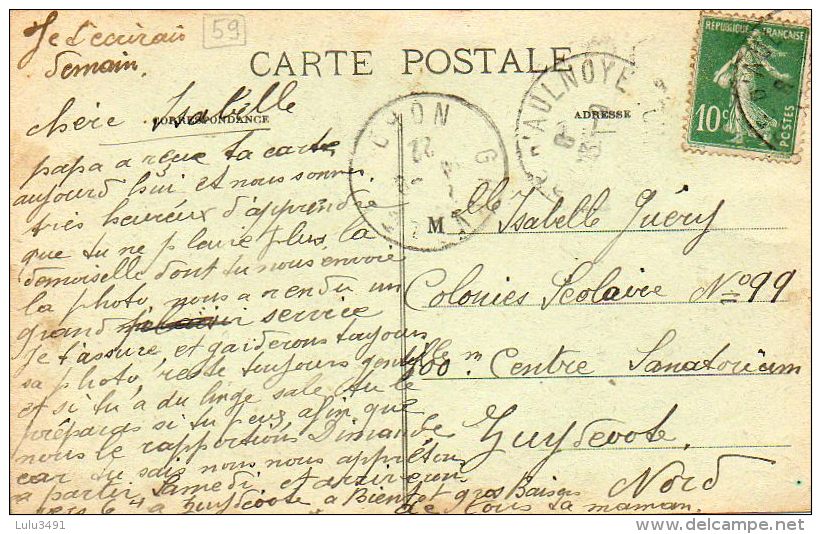 Je t'ecrirais
demain.
59
CARTE POSTALE
CORRESPONDANCE
ADRESSE
RÉPUBLIQUE FRANÇAISE
10c
POSTES
AULNOYE
LYON GARE
22
chère Isabelle
papa a reçue ta carte
aujourd hui et nous sommes
très heureux d'apprendre
que tu ne pleure plus, la
demoiselle dont tu nous envoie
la photo, nous a rendu un
grand service
Je t'assure et garderons toujours
sa photo, reste toujours gentille
et si tu a du linge sale tu le
prépares si tu peux afin que
nous le rapportions Dimanche
car tu sais nous nous apprêtons
a partir Samedi et arriveron
vers 6 h a Zuydcote a Bientot et gros Baisers
de tous ta maman.
Melle Isabelle Guéry
Colonies Scolaire No 99
400 m Centre Sanatorium
Zuydcote.
Nord
Lulu3491
www.delcampe.net